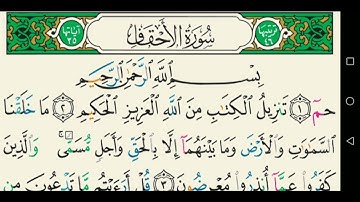 ترتيبها ٤٦ سُورَةُ الْأَحْقَافِ آياتها ٣٥
بِسْمِ ٱللَّهِ ٱلرَّحْمَٰنِ ٱلرَّحِيمِ
حمٓ ١ تَنزِيلُ ٱلْكِتَٰبِ مِنَ ٱللَّهِ ٱلْعَزِيزِ ٱلْحَكِيمِ ٢ مَا خَلَقْنَا
ٱلسَّمَٰوَٰتِ وَٱلْأَرْضَ وَمَا بَيْنَهُمَآ إِلَّا بِٱلْحَقِّ وَأَجَلٍ مُّسَمًّى وَٱلَّذِينَ
كَفَرُوا۟ عَمَّآ أُنذِرُوا۟ مُعْرِضُونَ ٣ قُلْ أَرَءَيْتُم مَّا تَدْعُونَ مِن